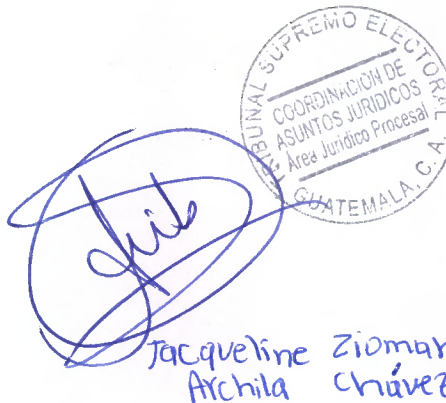 TRIBUNAL SUPREMO ELECTORAL
COORDINACIÓN DE
ASUNTOS JURIDICOS
Area Jurídico Procesal
GUATEMALA, C. A.
Jacqueline Ziomar
Archila Chávez